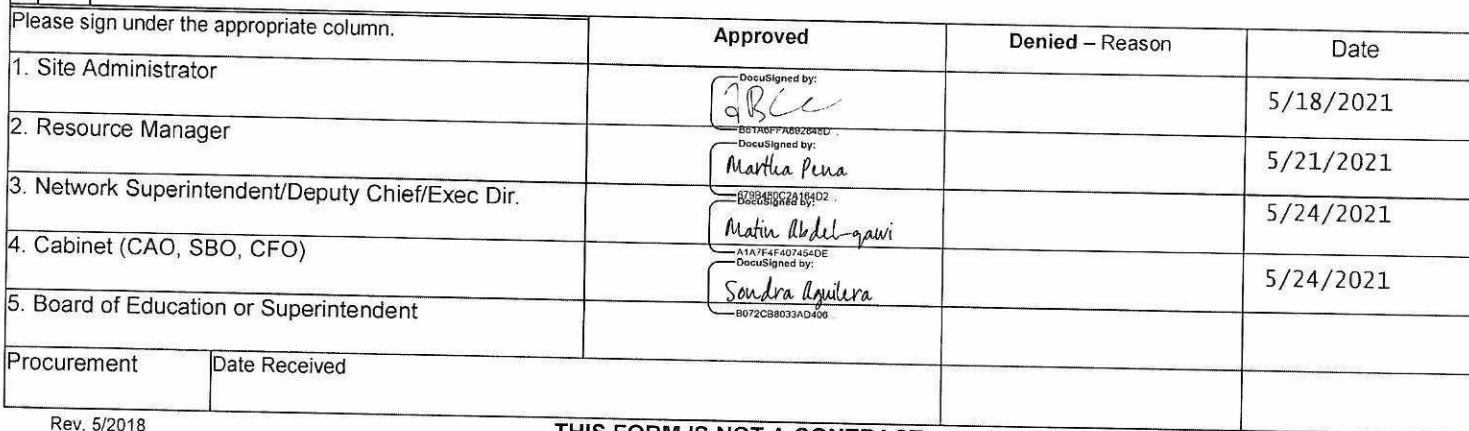 Please sign under the appropriate column. Approved Denied – Reason Date
1. Site Administrator DocuSigned by: 5/18/2021
B61A6FFA892648D...
2. Resource Manager DocuSigned by: Martha Pena 5/21/2021
679B480C2A164D2...
3. Network Superintendent/Deputy Chief/Exec Dir. DocuSigned by: Matin Abdel-qawi 5/24/2021
A1A7F4F407454DE...
4. Cabinet (CAO, SBO, CFO) DocuSigned by: Sondra Aguilera 5/24/2021
B072CB8033AD406...
5. Board of Education or Superintendent
Procurement Date Received
Rev. 5/2018 THIS FORM IS NOT A CONTRACT